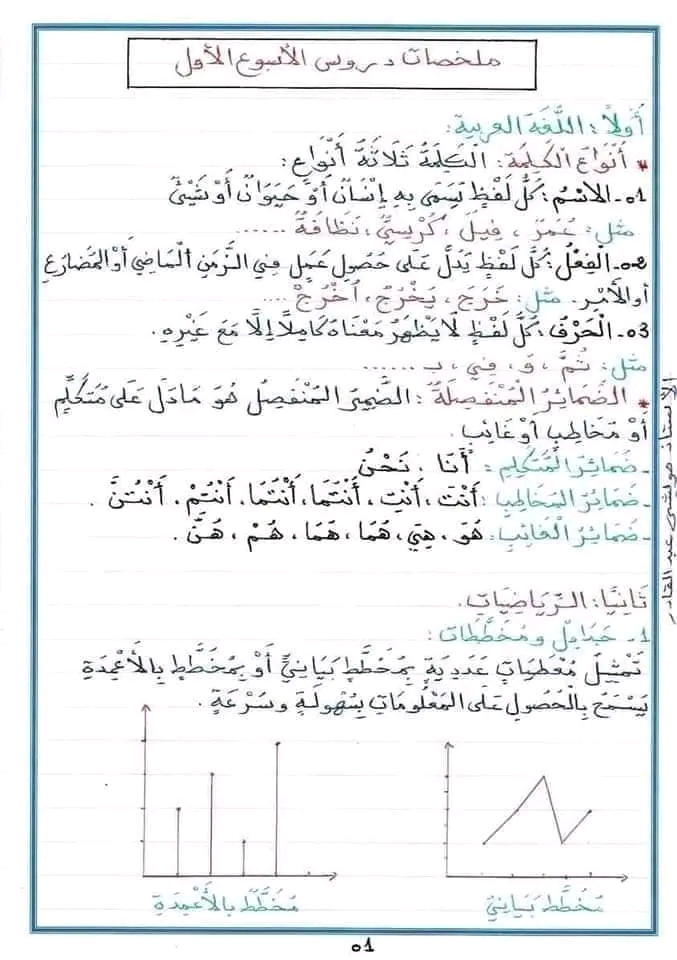 ملخصات دروس الأسبوع الأول
أَولاً: اللُّغَة العربية:
* أَنْوَاعُ الكَلِمَةِ: الكَلِمَةُ ثَلَاثَةُ أَنْوَاعٍ:
01- الاسْمُ: كُلُّ لَفْظٍ يُسَمَى بِهِ إِنْسَانٌ أَوْ حَيَوَانٌ أَوْ شَيْئٌ
مثل: عُمَرُ ، فِيلٌ ، كُرْسِيٌّ ، نَظَافَةٌ ......
02- الْفِعْلُ: كُلُّ لَفْظٍ يَدُلُّ عَلَى حُصُولِ عَمَلٍ فِي الزَّمَنِ الْمَاضِي أَوْ المُضَارِعِ
أو الأَمْرِ. مثل: خَرَجَ ، يَخْرُجُ ، اُخْرُجْ ....
03- الْحَرْفُ: كُلُّ لَفْظٍ لَا يَظْهَرُ مَعْنَاهُ كَامِلًا إِلَّا مَعَ غَيْرِهِ.
مثل: ثُمَّ ، وَ ، فِي ، بِ ......
* الضَمَائِرُ المُنْفَصِلَةُ: الضَّمِيرُ المُنْفَصِلُ هُوَ مَا دَلَّ عَلَى مُتَكَلِّمٍ
أَوْ مُخَاطِبٍ أَوْ غَائِبٍ.
- ضَمَائِرُ المُتَكَلِّمِ: أَنَا ، نَحْنُ
- ضَمَائِرُ المُخَاطِبِ: أَنْتَ ، أَنْتِ ، أَنْتُمَا ، أَنْتُمَا ، أَنْتُمْ ، أَنْتُنَّ .
- ضَمَائِرُ الغَائِبِ: هُوَ ، هِيَ ، هُمَا ، هُمَا ، هُمْ ، هُنَّ .
ثَانِيًا: الرِّيَاضِيَاتِ.
1- جَدَاوِلُ ومُخَطَّطَات:
تَمْثِيلُ مُعْطَيَاتٍ عَدَدِيَةٍ بِمُخَطَّطٍ بَيَانِيٍّ أَوْ بِمُخَطَّطٍ بِالأَعْمِدَةِ
يَسْمَحُ بِالْحُصُولِ عَلَى المَعْلُومَاتِ بِسُهُولَةٍ وَسُرْعَةٍ .
مُخَطَّط بَيَانِيٌّ
مُخَطَّطٌ بالأَعْمِدَةِ
01
الأستاذ حويشي عبد القادر